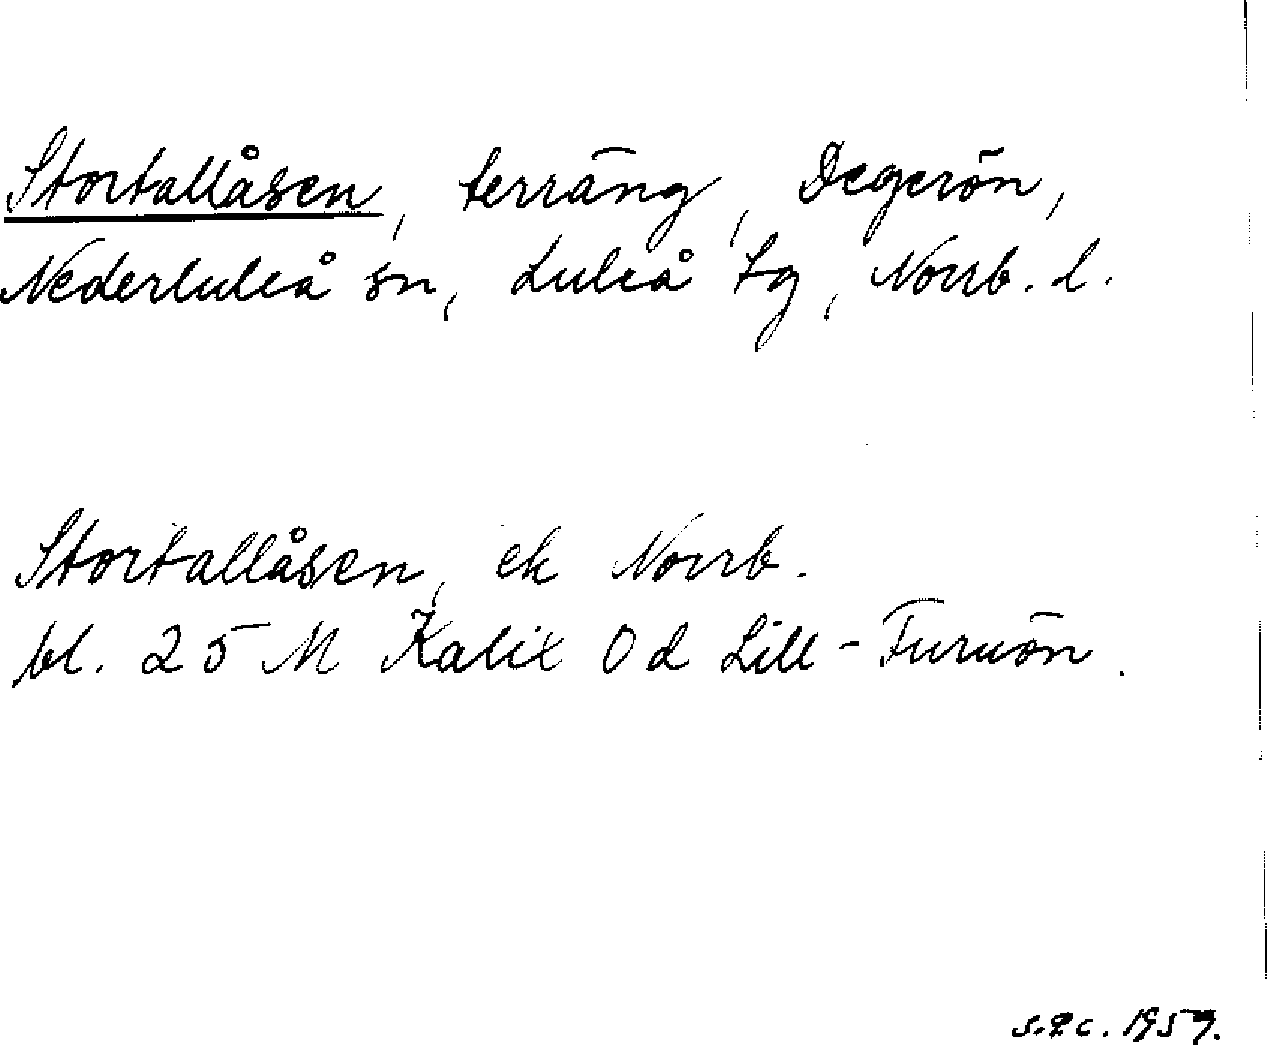 Stortallåsen, terräng, Degerön,
Nederluleå sn, Luleå tg, Norrb. l.
Stortallåsen, ek Norrb.
bl. 25 M Kalix 0 d Lill-Furuön.
1959.